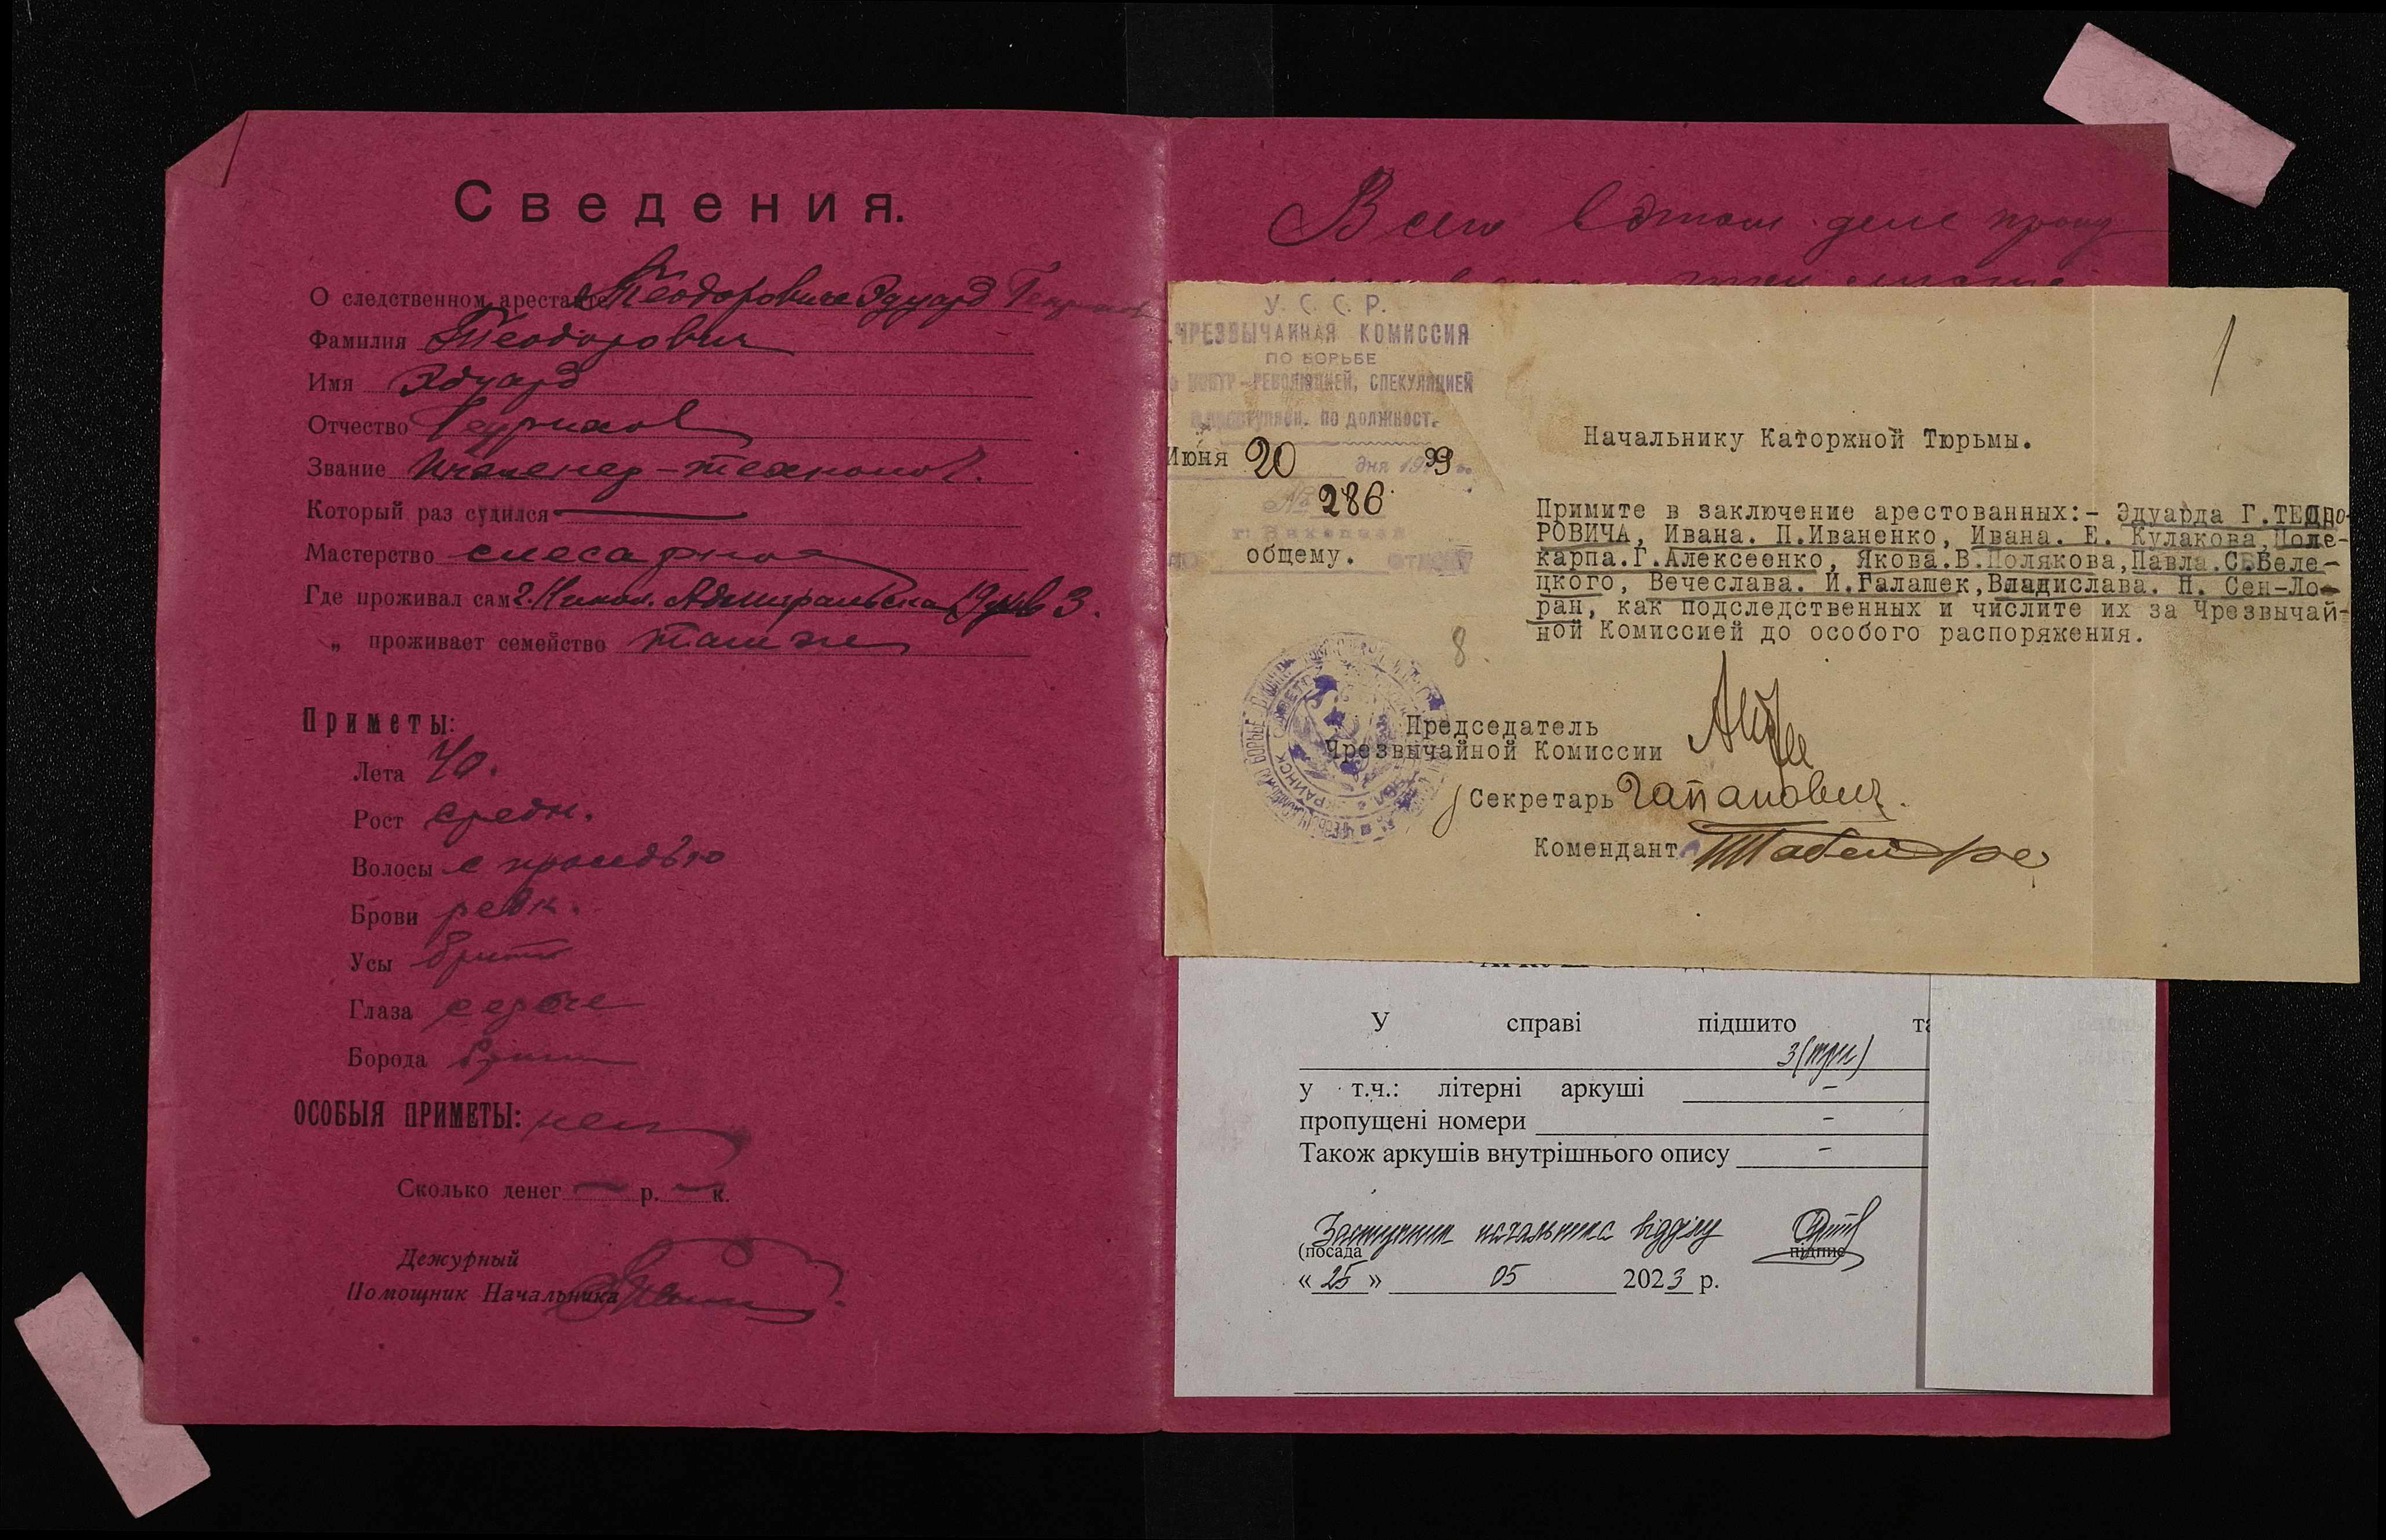 Сведения.
О следственном арестанте Теодорович Эдуард
Фамилия Теодорович
Имя Эдуард
Отчество Генрихов
Звание Инженер-технолог.
Который раз судился —
Мастерство слесарное
Где проживал сам г. Никол. Адмиральская 19 кв 3.
„ проживает семейство там же
Приметы:
Лета 40.
Рост средн.
Волосы с проседью
Брови редк.
Усы брит
Глаза серые
Борода брит
ОСОБЫЯ ПРИМЕТЫ: нет
Сколько денег — р. — к.
Дежурный
Помощник Начальника
Всего в этом деле
У. С. С. Р.
ЧРЕЗВЫЧАЙНАЯ КОМИССИЯ
ПО БОРЬБЕ
КОНТР-РЕВОЛЮЦИЕЙ, СПЕКУЛЯЦИЕЙ
по должност.
Июня 20 дня 19
№ 286
г.
общему.
1
Начальнику Каторжной Тюрьмы.
Примите в заключение арестованных:- Эдуарда Г.ТЕОДО-
РОВИЧА, Ивана. П.Иваненко, Ивана. Е. Кулакова,Поле-
карпа.Г.Алексеенко, Якова.В.Полякова,Павла.С.Беле-
цкого, Вечеслава. И.Галашек,Владислава. П. Сен-Ло-
ран, как подследственных и числите их за Чрезвычай-
ной Комиссией до особого распоряжения.
8.
Председатель
Чрезвычайной Комиссии
Секретарь Гапанович.
Комендант
У справі підшито
3 (три)
у т.ч.: літерні аркуші –
пропущені номери –
Також аркушів внутрішнього опису –
Заступник начальника відділу
(посада підпис
« 25 » 05 2023 р.